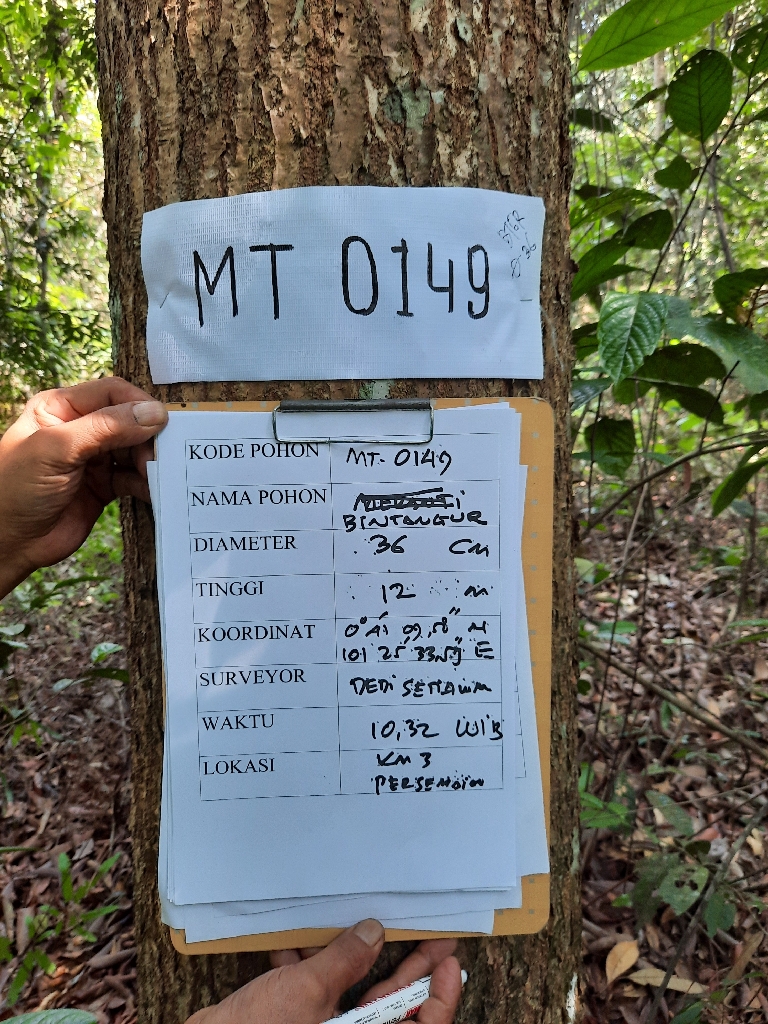 MT 0149
KODE POHON MT-0149
NAMA POHON BINTANGUR
DIAMETER 36 CM
TINGGI 12 m
KOORDINAT
101 25' 33,59 E
SURVEYOR DEDI SETIAWAN
WAKTU 10,32 WIB
LOKASI KM 3